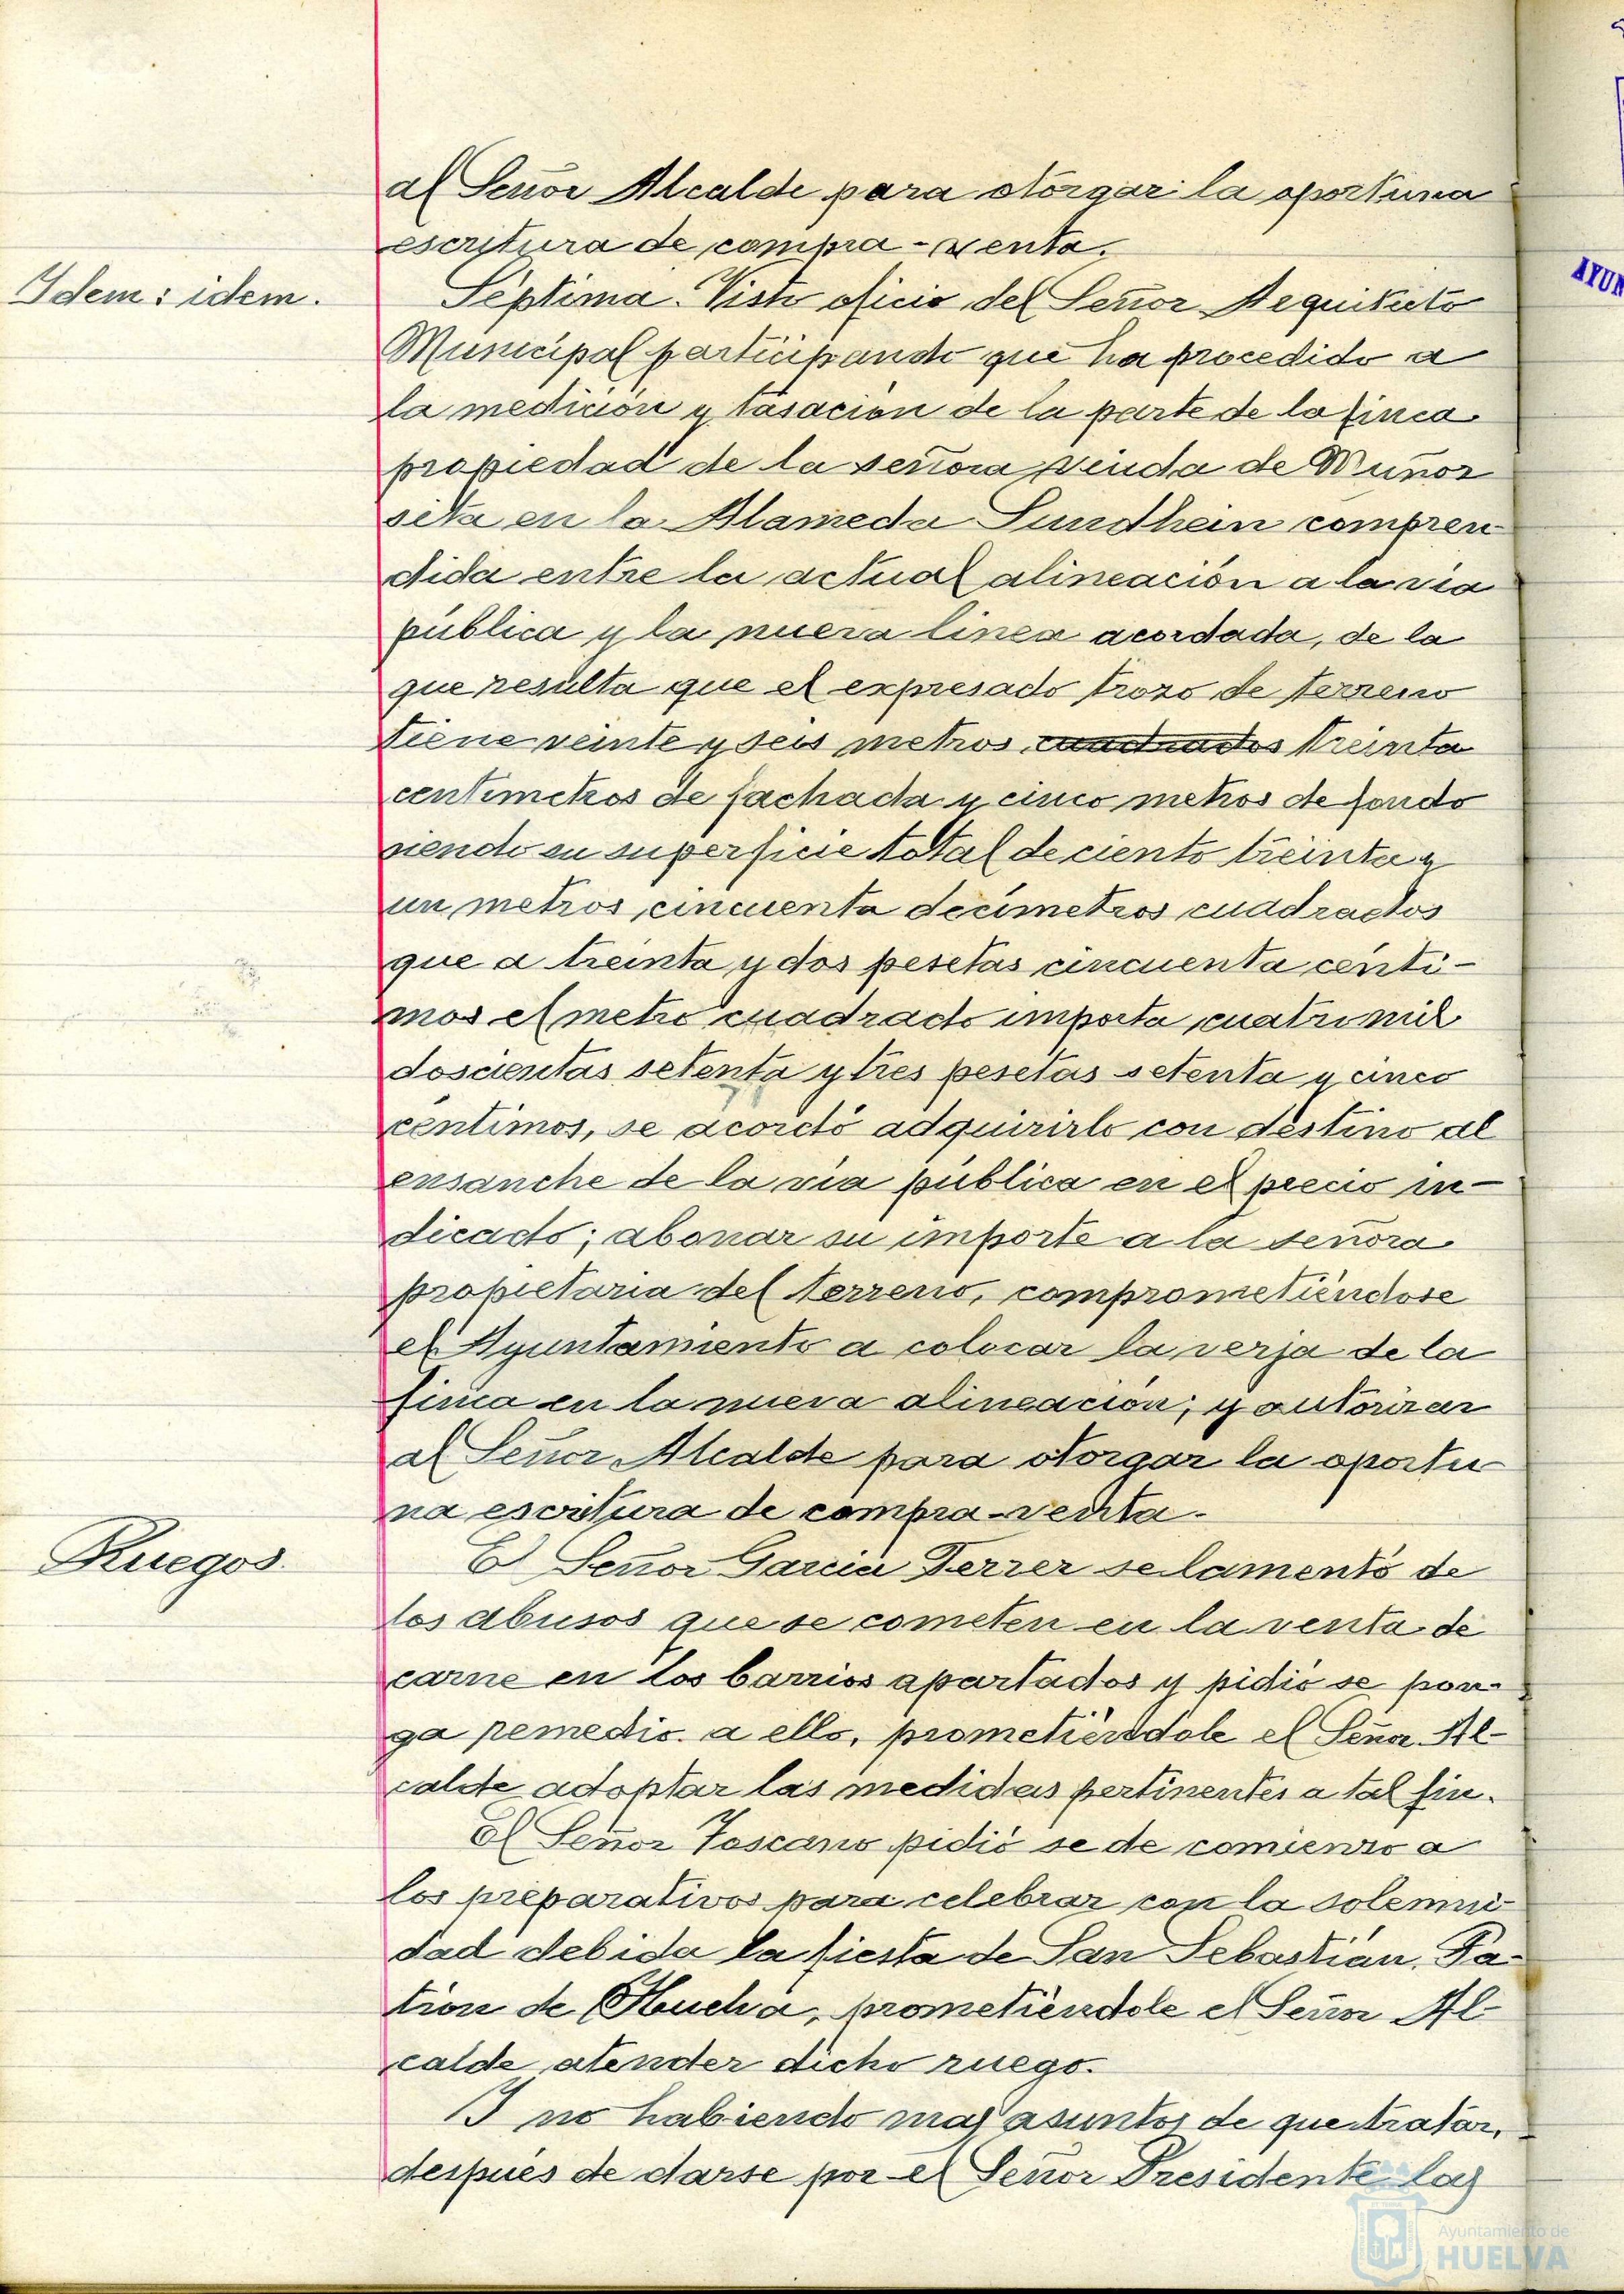 al Señor Alcalde para otorgar la oportuna
escritura de compra-venta.
Idem: idem.
Séptima. Visto oficio del Señor Arquitecto
Municipal participando que ha procedido a
la medición y tasación de la parte de la finca
propiedad de la señora viuda de Muñoz
sita en la Alameda Sundhein compren
dida entre la actual alineación a la vía
pública y la nueva linea acordada, de la
que resulta que el expresado trozo de terreno
tiene veinte y seis metros cuadrados treinta
centimetros de fachada y cinco metros de fondo
siendo su superficie total de ciento treinta y
un metros cincuenta decímetros cuadrados
que a treinta y dos pesetas cincuenta cénti-
mos el metro cuadrado importa cuatro mil
doscientas setenta y tres pesetas setenta y cinco
céntimos, se acordó adquirirlo con destino al
ensanche de la vía pública en el precio in-
dicado; abonar su importe a la señora
propietaria del terreno, comprometiéndose
el Ayuntamiento a colocar la verja de la
finca en la nueva alineación; y autorizar
al Señor Alcalde para otorgar la oportu
na escritura de compra-venta.
Ruegos.
El Señor Garcia Ferrer se lamentó de
los abusos que se cometen en la venta de
carne en los barrios apartados y pidió se pon-
ga remedio a ello, prometiéndole el Señor Al-
calde adoptar las medidas pertinentes a tal fin.
El Señor Toscano pidió se de comienzo a
los preparativos para celebrar con la solemni-
dad debida la fiesta de San Sebastián, Pa-
tron de Huelva, prometiéndole el Señor Al-
calde atender dicho ruego.
Y no habiendo mas asuntos de que tratar,
después de darse por el Señor Presidente las
AYUN
Ayuntamiento de
HUELVA